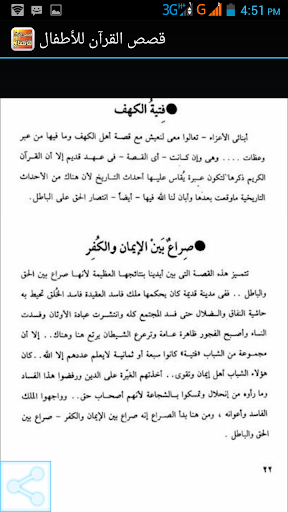 3G G 4:51 PM
قصص القرآن للأطفال
● فتيةُ الكهف
أبنائى الأعزاء - تعالوا معى لنعيش مع قصة أهل الكهف وما فيها من عبر
وعظات .... وهى وإن كـانت - أى القـصة - فى عـهـد قديم إلا أن القـرآن
الكريم ذكرها لتكون عـبـرة يُقاس عليـها أحداث التـاريخ لأن هناك من الأحداث
التاريخية ماوقعت بعدها وأبان لنا الله فيها - أيضاً - انتصار الحق على الباطل .
● صِراعٌ بَيْنَ الإيمان والكُفر
تتميـز هذه القصـة التى بين أيدينا بنتائجـها العظيمة لأنهـا صراع بين الحق
والباطل .. ففى مدينة قديمة كان يحكمها ملك فاسد العقيدة فاسد الخُلق تحيط به
حاشية النفاق والـضـلال حتى فسـد المجتمع كله وانتـشـرت عبادة الأوثان وفسدت
النسـاء وأصبـح الفجـور ظاهرة عامـة وترعرع الشيطان يرتـع هنا وهناك ... إلا أن
مجمـوعة من الشباب «فتيـة» كانوا سبعة أو ثمـانيـة لايعلم عددهم إلا الله .. كان
هؤلاء الشباب أهل إيمان وتقوى .. أخذتهم الغَيْرة على الدين ورفضوا هذا الفسـاد
وما رأوه من إنحلال وتمسكوا بـالشجاعة لأنهم أصـحاب حق .. وواجهـوا الملك
الفاسد وأعوانه ، ومن هنا بدأ الصراع إنه صراع بين الإيمان والكفر - صراع بين
الحق والباطل .
٢٢